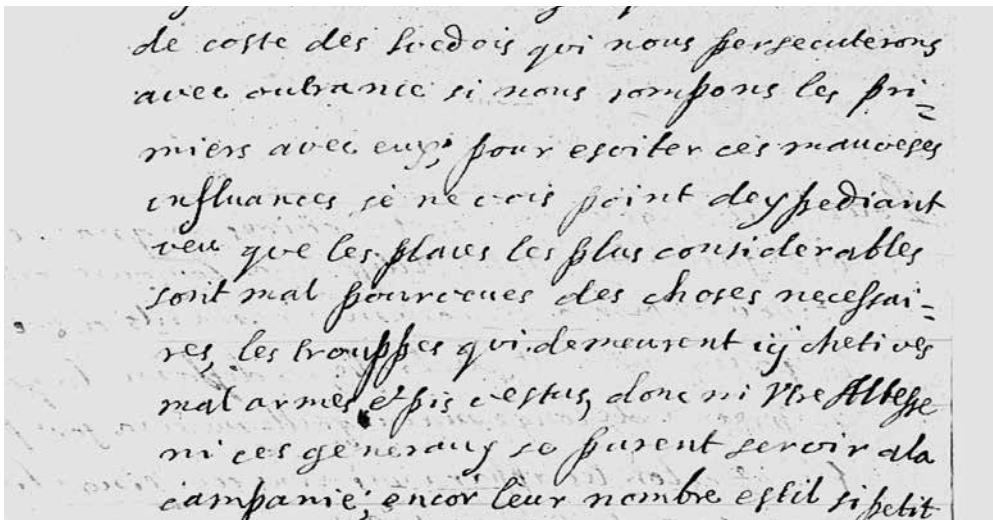 de coste des suedois qui nous persecuterons
avec outrance si nous rompons les pri=
miers avec eux, pour esviter ces mauveses
influances je ne vois point dexpediant
veu que les places les plus considerables
sont mal pourveues des choses necessai=
res, les trouppes qui demeurent icÿ chetives
mal armes et pis vestus, donc ni Vtre Altesse
ni ces generaux se purent servir a la
campanie; encor leur nombre estil si petit